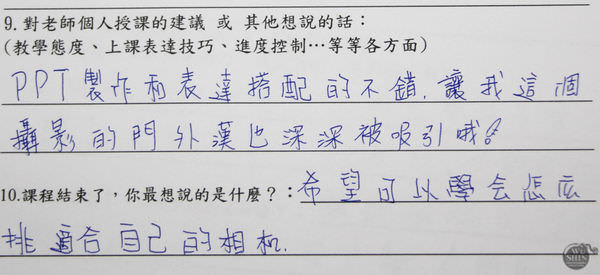 9. 對老師個人授課的建議 或 其他想說的話：
(教學態度、上課表達技巧、進度控制…等等各方面)
PPT製作和表達搭配的不錯,讓我這個
攝影的門外漢也深深被吸引哦!
10.課程結束了，你最想說的是什麼？：希望可以學会怎広
挑適合自己的相机.